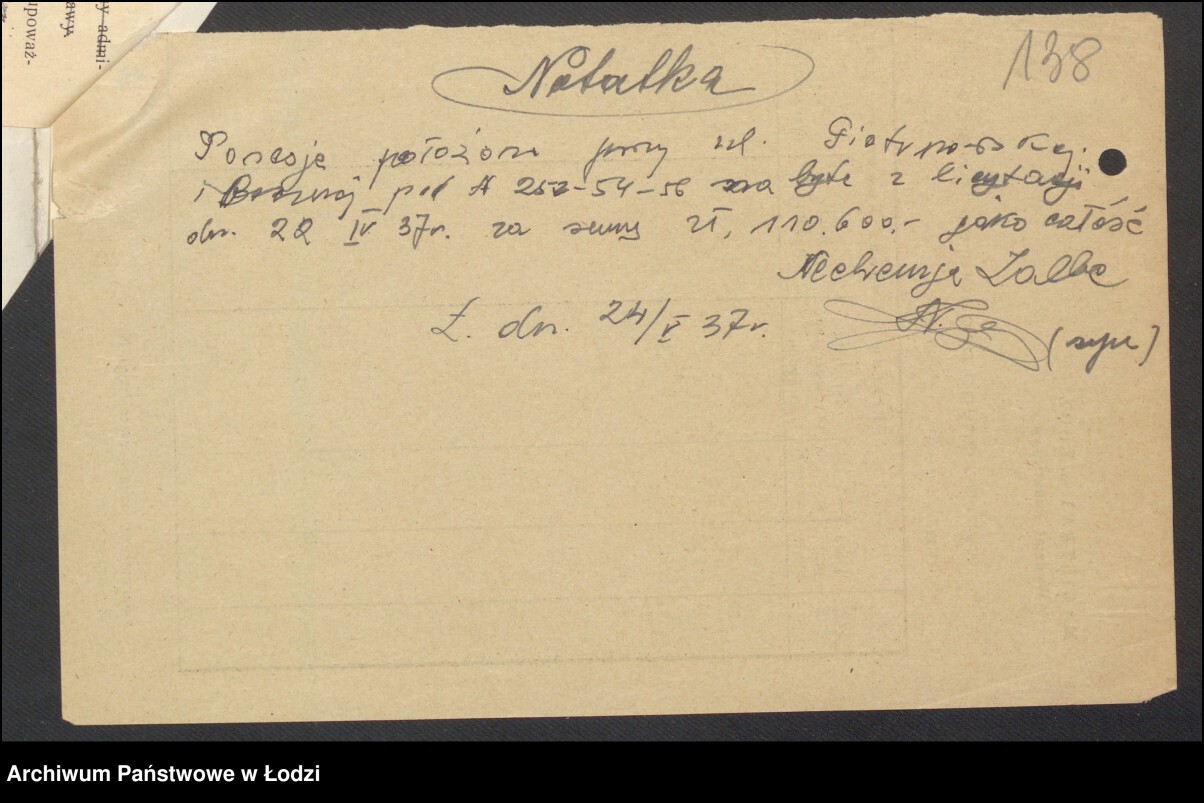 cy admi-
awy
upoważ-
138
Notatka
Posesję położoną przy ul. Piotrkowskiej
i Brzeźnej pod № 252-54-56 nabyte z licytacji
dn. 22 IV 37r. za sumę zł, 110.600,- jako całość
Nechemja Zalbe
Ł. dn. 24/V 37r.
(syn)
Archiwum Państwowe w Łodzi